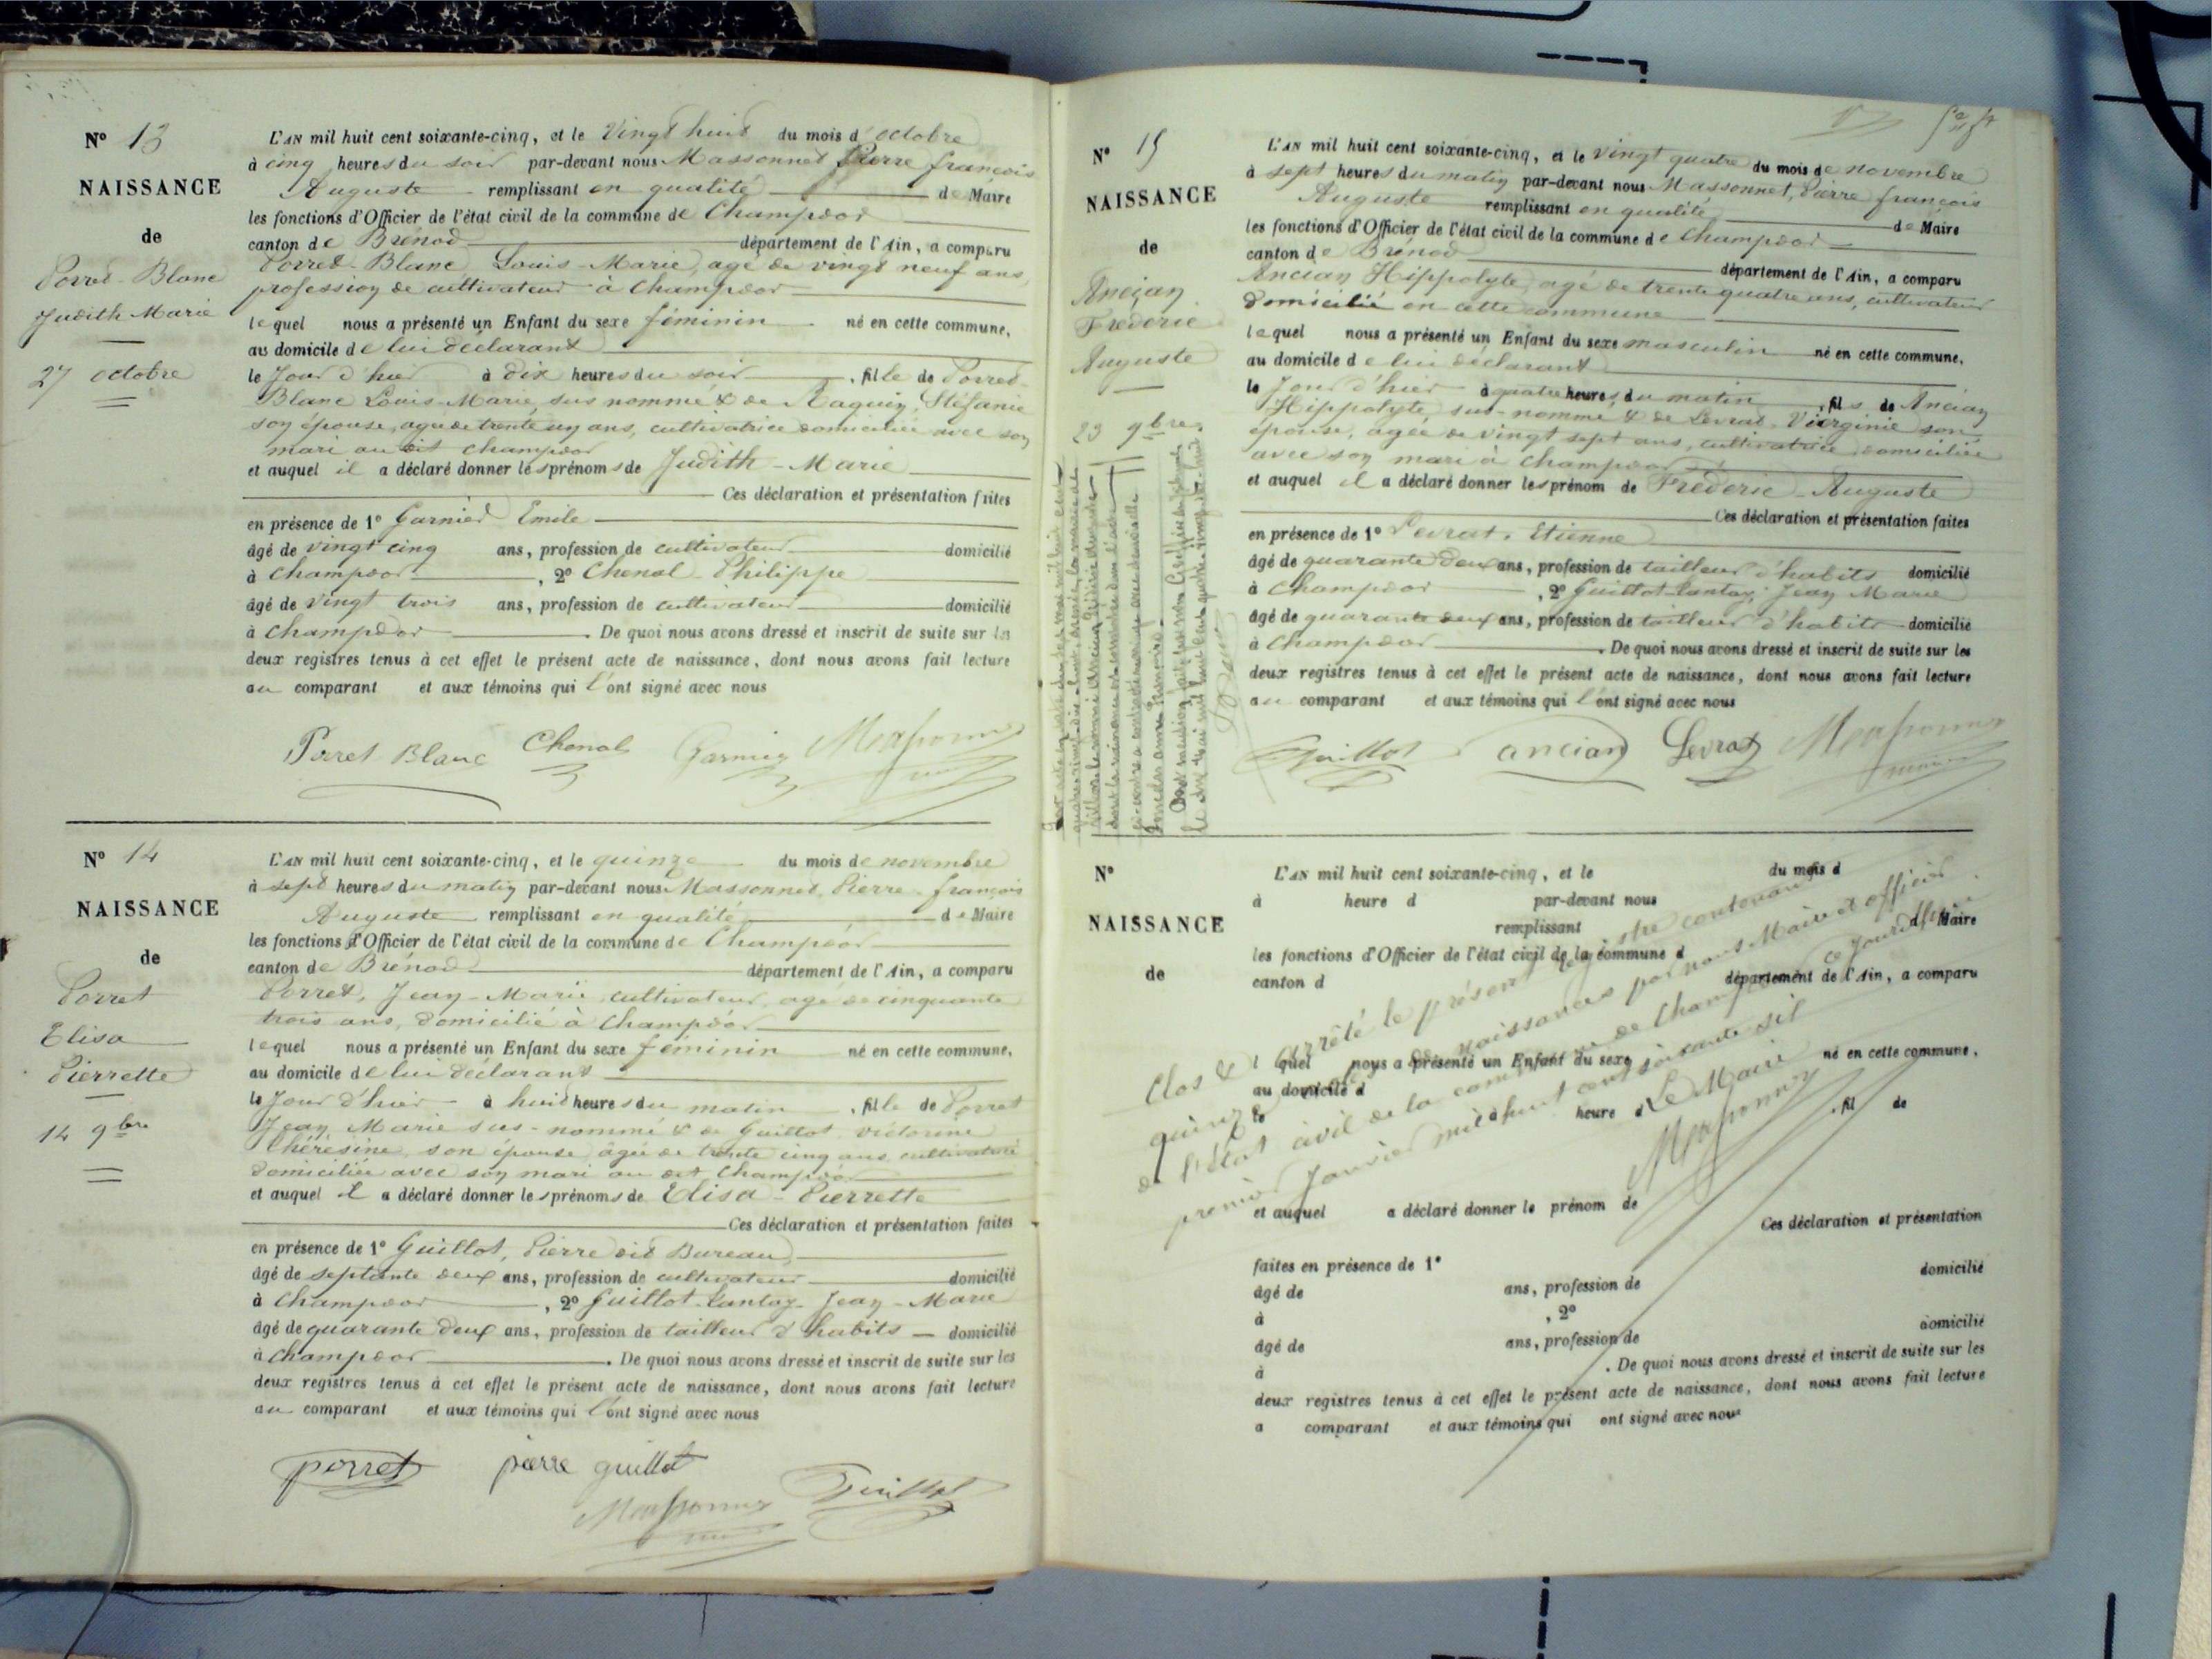 Nº 13
NAISSANCE
de
Porret-Blanc
Judith Marie
27 octobre
L'AN mil huit cent soixante-cinq, et le vingt huit du mois d'octobre
à cinq heures du soir par-devant nous Massonnet Pierre françois
Auguste remplissant en qualité de Maire
les fonctions d'Officier de l'état civil de la commune de Champdor
canton de Brénod département de l'Ain, a comparu
Porret-Blanc, Louis-Marie, agé de vingt neuf ans,
profession de cultivateur à Champdor
lequel nous a présenté un Enfant du sexe féminin né en cette commune,
au domicile de lui déclarant
le Jour d'hier à dix heures du soir, fille de Porret-
Blanc Louis-Marie, sus nommé & de Raguin, Stéfanie
son épouse, agée de trente un ans, cultivatrice domiciliée avec son
mari au dit Champdor
et auquel il a déclaré donner les prénoms de Judith-Marie
Ces déclaration et présentation faites
en présence de 1º Garnier Emile
âgé de vingt cinq ans, profession de cultivateur domicilié
à Champdor, 2º Chenal Philippe
âgé de vingt trois ans, profession de cultivateur domicilié
à Champdor. De quoi nous avons dressé et inscrit de suite sur les
deux registres tenus à cet effet le présent acte de naissance, dont nous avons fait lecture
au comparant et aux témoins qui l'ont signé avec nous
Porret Blanc Chenal Garnier Massonnet
Nº 14
NAISSANCE
de
Porret
Elisa
Pierrette
14 9bre
L'AN mil huit cent soixante-cinq, et le quinze du mois de novembre
à sept heures du matin par-devant nous Massonnet, Pierre-françois
Auguste remplissant en qualité de Maire
les fonctions d'Officier de l'état civil de la commune de Champdor
canton de Brénod département de l'Ain, a comparu
Porret, Jean-Marie, cultivateur, agé de cinquante
trois ans, domicilié à Champdor
lequel nous a présenté un Enfant du sexe féminin né en cette commune,
au domicile de lui déclarant
le Jour d'hier à huit heures du matin, fille de Porret
Jean Marie sus-nommé & de Guillot, victorine
Thérésine, son épouse âgée de trente cinq ans cultivatrice
domiciliée avec son mari au dit Champdor
et auquel il a déclaré donner les prénoms de Elisa-Pierrette
Ces déclaration et présentation faites
en présence de 1º Guillot, Pierre dit Bureau
âgé de septante deux ans, profession de cultivateur domicilié
à Champdor, 2º Guillot-Lantoz Jean-Marie
âgé de quarante deux ans, profession de tailleur d'habits domicilié
à Champdor. De quoi nous avons dressé et inscrit de suite sur les
deux registres tenus à cet effet le présent acte de naissance, dont nous avons fait lecture
au comparant et aux témoins qui l'ont signé avec nous
porret pierre guillot
Massonnet Guillot
Nº 15
NAISSANCE
de
Ancian
Frederic
Auguste
23 9bre
L'AN mil huit cent soixante-cinq, et le vingt quatre du mois de novembre
à sept heures du matin par-devant nous Massonnet, Pierre françois
Auguste remplissant en qualité de Maire
les fonctions d'Officier de l'état civil de la commune de Champdor
canton de Brénod département de l'Ain, a comparu
Ancian Hippolyte, agé de trente quatre ans, cultivateur
domicilié en cette commune
lequel nous a présenté un Enfant du sexe masculin né en cette commune,
au domicile de lui déclarant
le Jour d'hier à quatre heures du matin, fils de Ancian
Hippolyte, sus-nommé & de Levrat, Vierginie son
épouse, agée de vingt sept ans, cultivatrice domiciliée
avec son mari à Champdor
et auquel il a déclaré donner les prénom de Frederic-Auguste
Ces déclaration et présentation faites
en présence de 1º Levrat, Etienne
âgé de quarante deux ans, profession de tailleur d'habits domicilié
à Champdor, 2º Guillot-Lantoz, Jean Marie
âgé de quarante deux ans, profession de tailleur d'habits domicilié
à Champdor. De quoi nous avons dressé et inscrit de suite sur les
deux registres tenus à cet effet le présent acte de naissance, dont nous avons fait lecture
au comparant et aux témoins qui l'ont signé avec nous
Guillot ancian Levrat Massonnet
Nº
NAISSANCE
de
L'AN mil huit cent soixante-cinq, et le du mois d
à heure d par-devant nous
remplissant d Maire
les fonctions d'Officier de l'état civil de la commune d
canton d département de l'Ain, a comparu
l quel nous a présenté un Enfant du sexe né en cette commune,
au domicile d
le à heure d, fil de
et auquel a déclaré donner le prénom de
Ces déclaration et présentation
faites en présence de 1º
âgé de ans, profession de domicilié
à, 2º
âgé de ans, profession de domicilié
à. De quoi nous avons dressé et inscrit de suite sur les
deux registres tenus à cet effet le présent acte de naissance, dont nous avons fait lecture
a comparant et aux témoins qui ont signé avec nous
Clos & arrêté le présent registre contenant
quinze actes de naissances par nous Maire et officier
de l'état civil de la commune de Champdor ce jourd'hui
premier Janvier mil huit cent soixante six
Le Maire
Massonnet